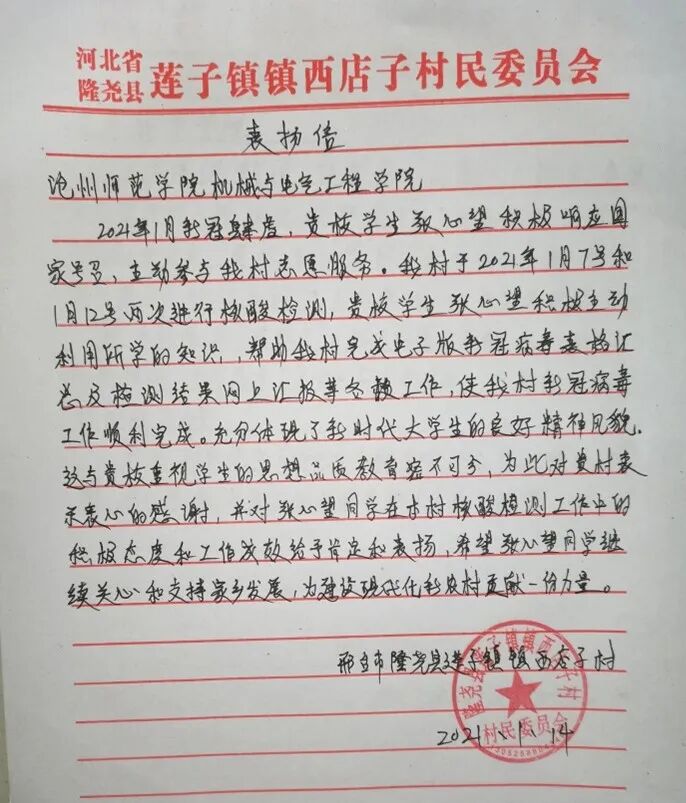 河北省
隆尧县 莲子镇镇西店子村民委员会
表扬信
沧州师范学院机械与电气工程学院
2021年1月新冠肆虐，贵校学生张心望积极响应国
家号召，主动参与我村志愿服务。我村于2021年1月7号和
1月12号两次进行核酸检测，贵校学生张心望积极主动
利用所学的知识，帮助我村完成电子版新冠病毒表格汇
总及检测结果网上汇报等各项工作，使我村新冠病毒
工作顺利完成。充分体现了新时代大学生的良好精神风貌.
这与贵校重视学生的思想品质教育密不可分，为此对贵村表
示衷心的感谢，并对张心望同学在本村核酸检测工作中的
积极态度和工作成效给予肯定和表扬，希望张心望同学继
续关心和支持家乡发展，为建设现代化新农村贡献一份力量。
邢台市隆尧县莲子镇镇西店子村
2021.1.14
隆尧县莲子镇镇西店子村
村民委员会